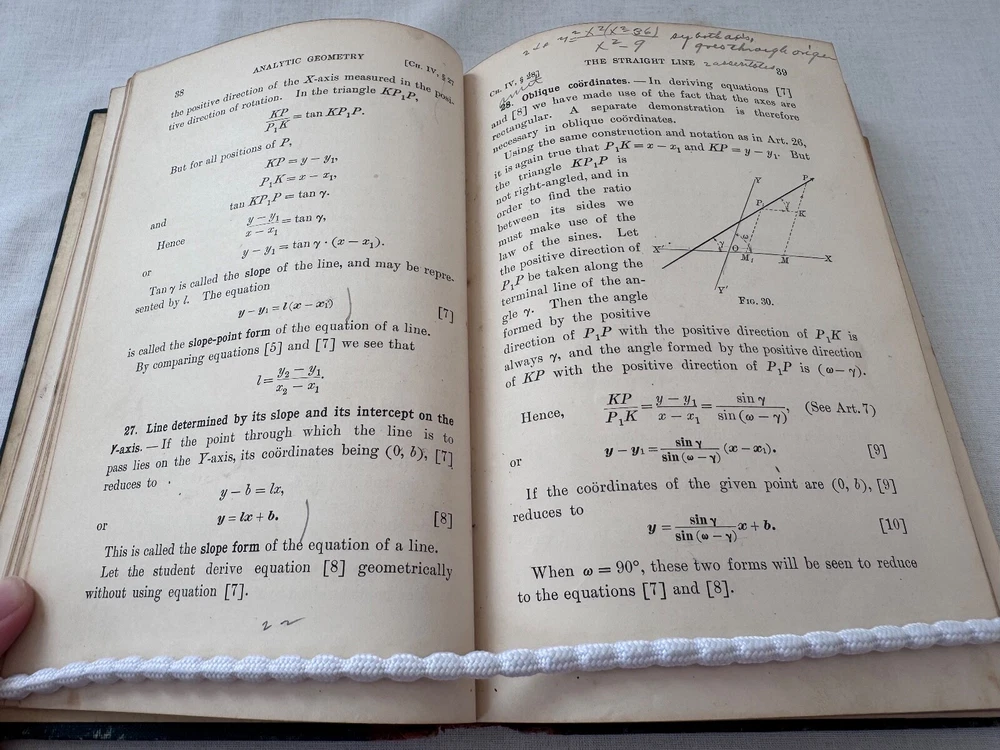 38 ANALYTIC GEOMETRY [CH. IV, § 27
the positive direction of the X-axis measured in the posi-
tive direction of rotation. In the triangle KP₁P,
KP/P₁K = tan KP₁P.
But for all positions of P,
KP = y − y₁,
P₁K = x − x₁,
tan KP₁P = tan γ.
and
(y − y₁)/(x − x₁) = tan γ,
Hence
y − y₁ = tan γ · (x − x₁).
or
Tan γ is called the slope of the line, and may be repre-
sented by l. The equation
y − y₁ = l(x − x₁) [7]
is called the slope-point form of the equation of a line.
By comparing equations [5] and [7] we see that
l = (y₂ − y₁)/(x₂ − x₁).
27. Line determined by its slope and its intercept on the
Y-axis. — If the point through which the line is to
pass lies on the Y-axis, its coördinates being (0, b), [7]
reduces to
y − b = lx,
or y = lx + b. [8]
This is called the slope form of the equation of a line.
Let the student derive equation [8] geometrically
without using equation [7].
22
y = x²(x²-36)/x²-9 sy both axis,
goes through origin
2 assentotes
CH. IV, § 28] THE STRAIGHT LINE 39
28. Oblique coördinates. — In deriving equations [7]
and [8] we have made use of the fact that the axes are
rectangular. A separate demonstration is therefore
necessary in oblique coördinates.
Using the same construction and notation as in Art. 26,
it is again true that P₁K = x − x₁ and KP = y − y₁. But
the triangle KP₁P is
not right-angled, and in
order to find the ratio
between its sides we
must make use of the
law of the sines. Let
the positive direction of
P₁P be taken along the
terminal line of the an-
gle γ. Then the angle
formed by the positive
Y
P
P₁
γ
K
ω
X'
γ
O
M₁
M
X
Y'
FIG. 30.
direction of P₁P with the positive direction of P₁K is
always γ, and the angle formed by the positive direction
of KP with the positive direction of P₁P is (ω−γ).
Hence, KP/P₁K = (y − y₁)/(x − x₁) = sin γ/sin (ω − γ), (See Art. 7)
or y − y₁ = sin γ/sin (ω − γ) (x − x₁). [9]
If the coördinates of the given point are (0, b), [9]
reduces to
y = sin γ/sin (ω − γ) x + b. [10]
When ω = 90°, these two forms will be seen to reduce
to the equations [7] and [8].